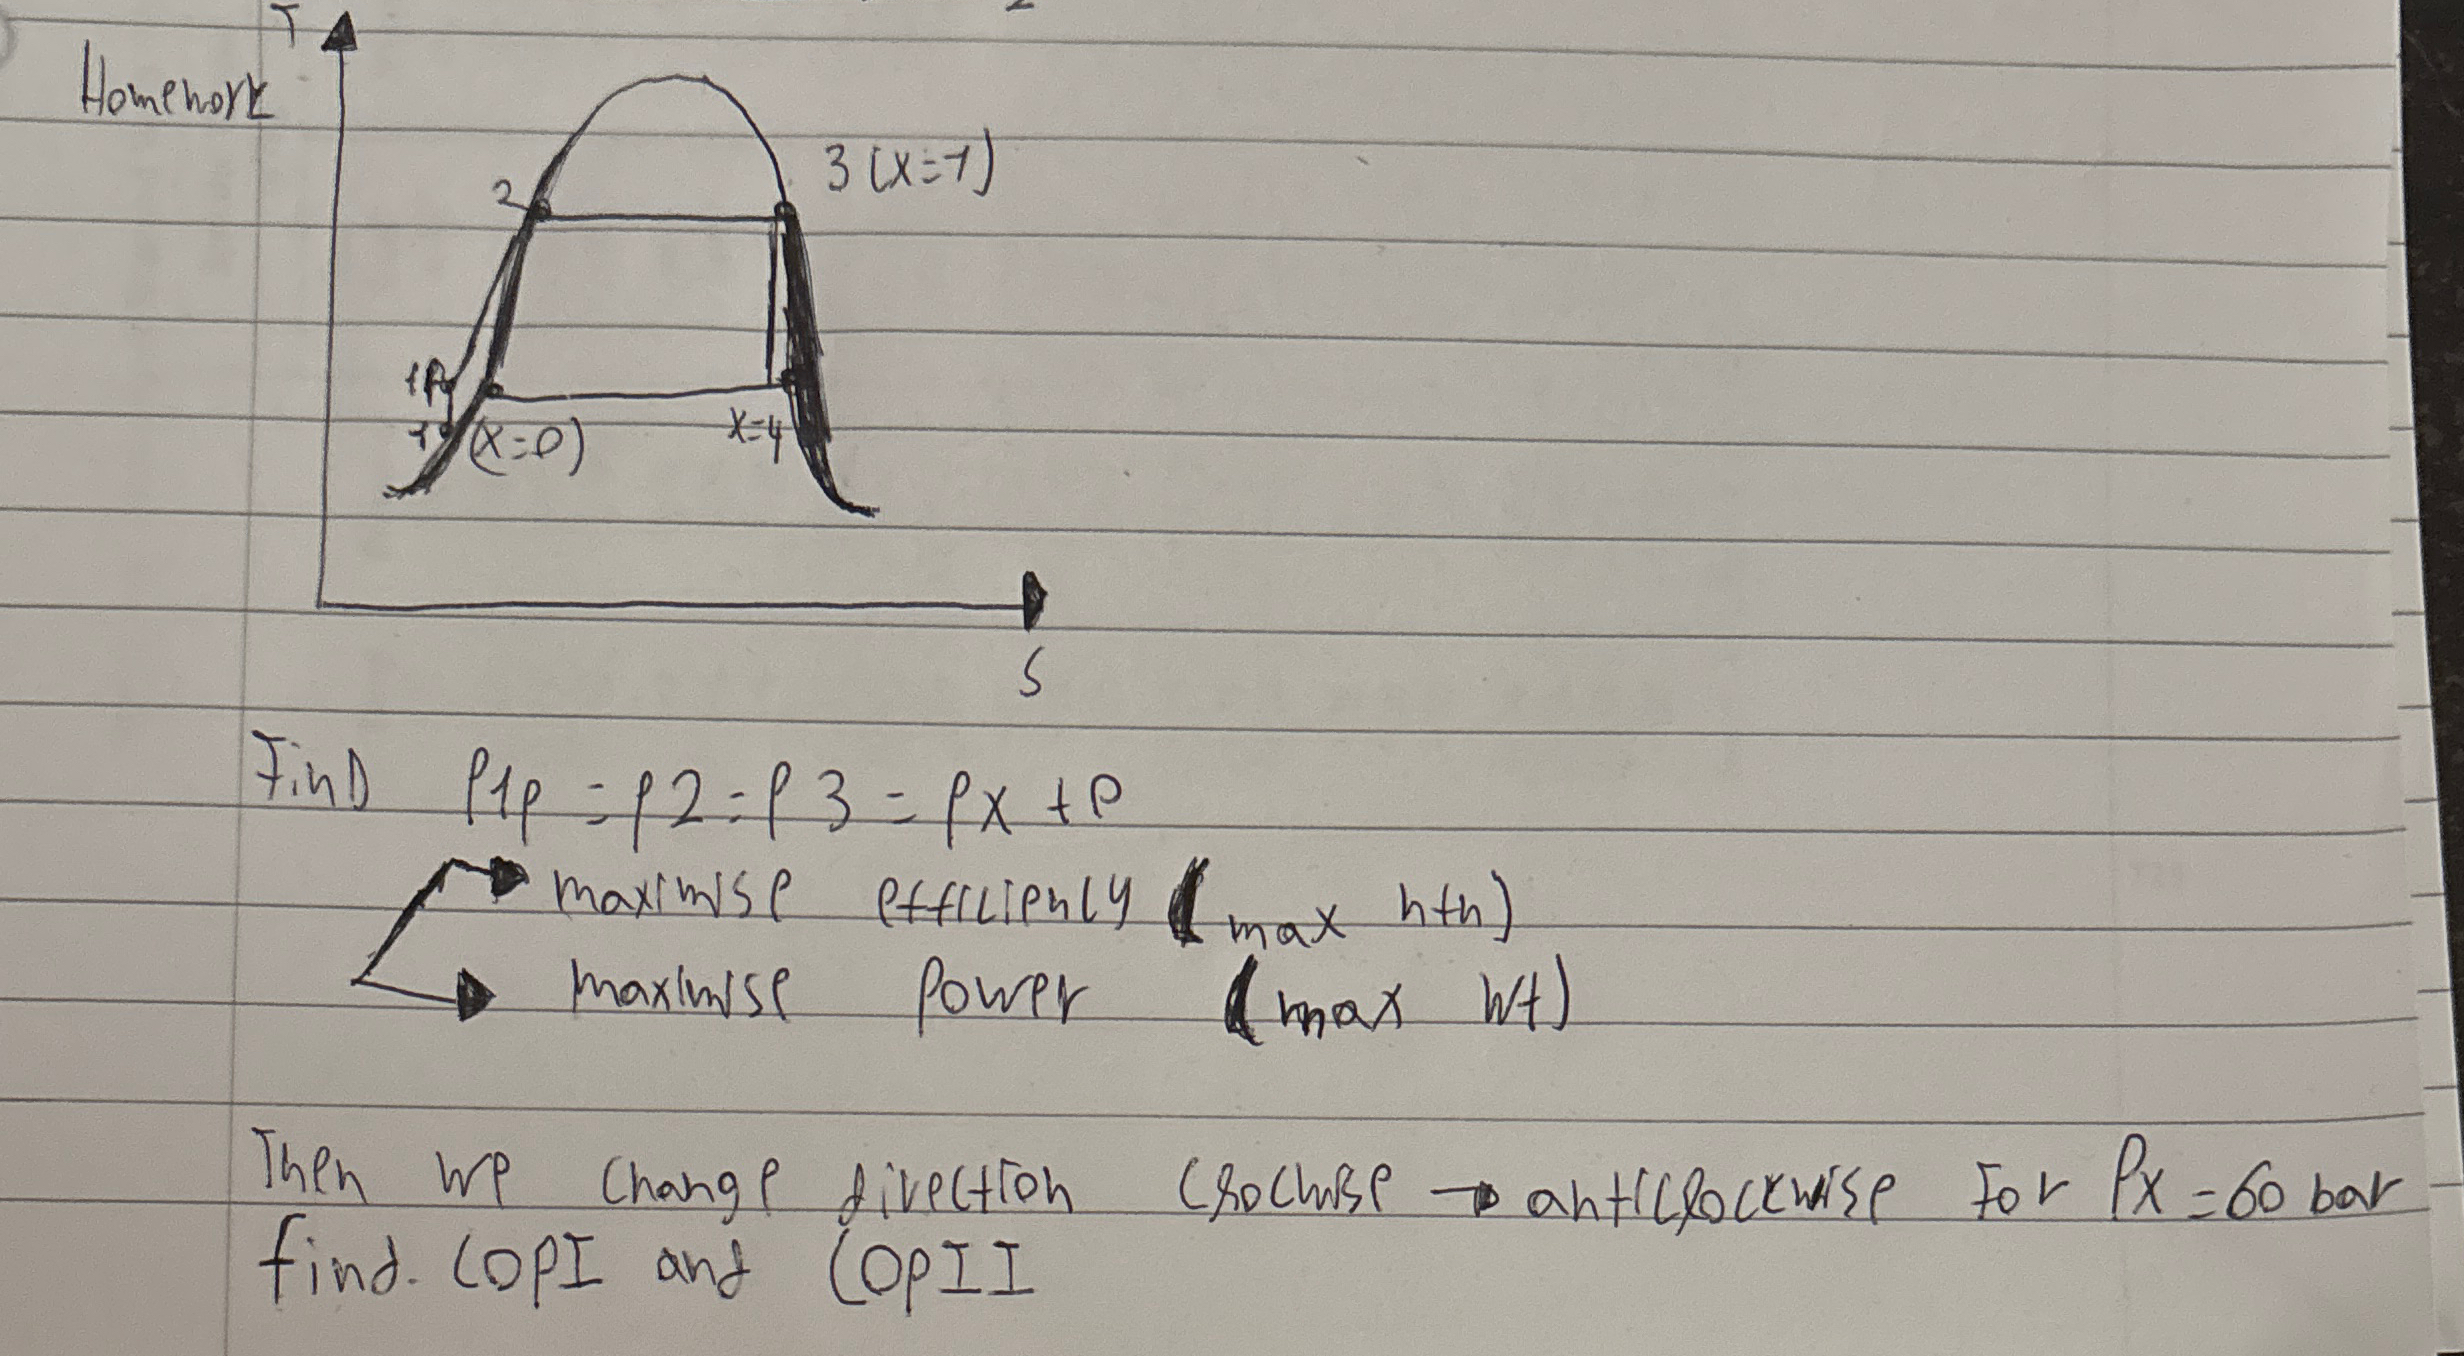 T
Homework
3 (x=1)
2
1p
1 (x=0)
x=4
S
Find P1p = P2 = P3 = Px to
maximise efficiency (max nth)
maximise power (max Wt)
Then we change direction clockwise → anticlockwise for Px = 60 bar
find. COPI and COPII